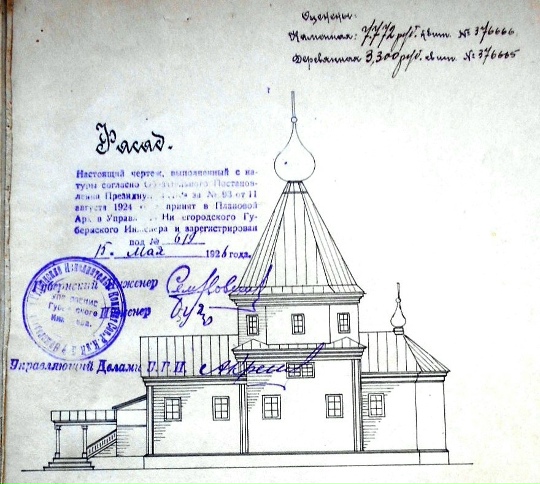 Оценены:
Каменная: 7.772 руб. квит. № 376666.
Деревянная 3,300 руб. квит. № 376665
Фасад.
Настоящий чертеж, выполненный с на-
туры согласно Обязательного Постанов-
ления Президиума за № 93 от 11
августа 1924 принят в Плановой
Арх. в Управ. Нижегородского Гу-
бернского Инженера и зарегистрирован
под № 619
15. Мая 1926 года.
Губернский Инженер
Инженер
Управляющий Делами У.Г.И.
Управление
Губернского
Инженера.